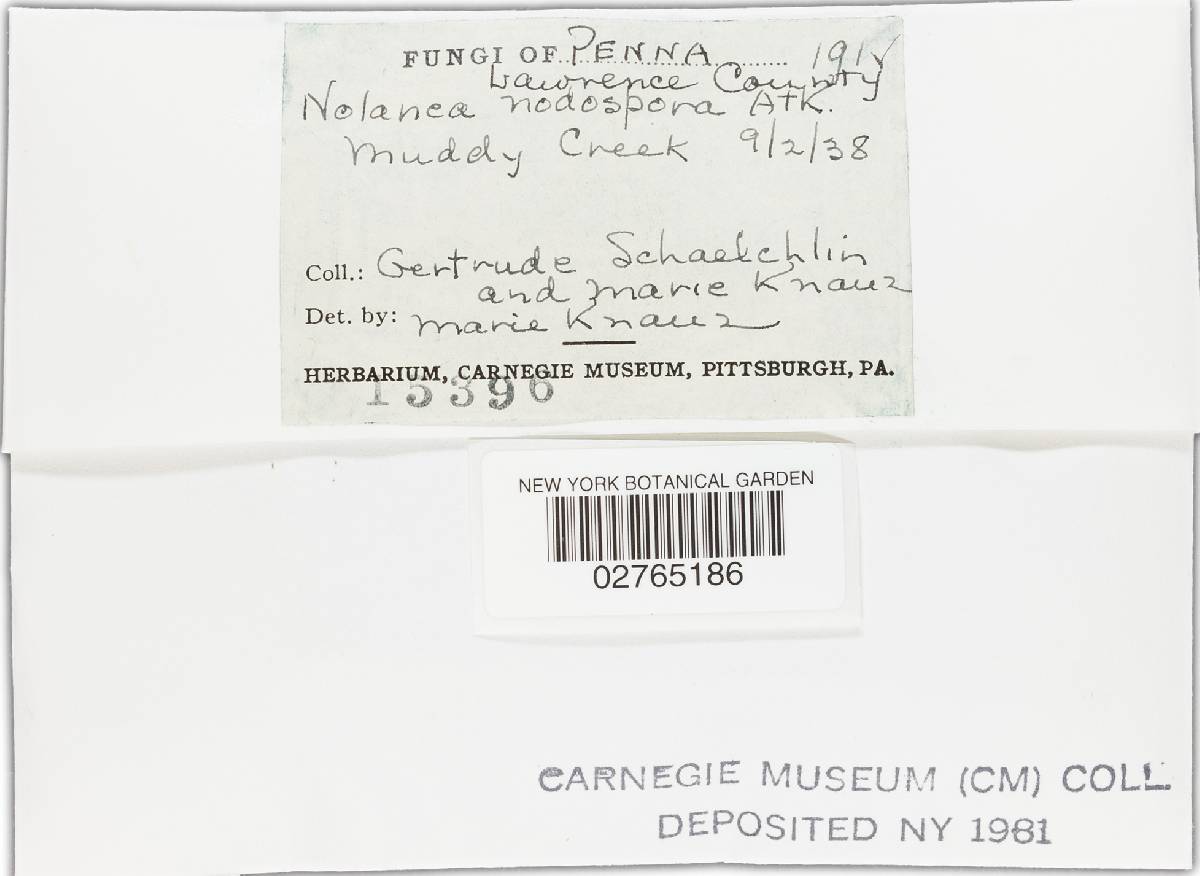 FUNGI OF PENNA. 191
Lawrence County
Nolanea nodospora Atk.
Muddy Creek 9/2/38
Coll.: Gertrude
and Marie Knauz
Det. by: Marie Knauz
HERBARIUM, CARNEGIE MUSEUM, PITTSBURGH, PA.
15396
NEW YORK BOTANICAL GARDEN
02765186
CARNEGIE MUSEUM (CM) COLL.
DEPOSITED NY 1981